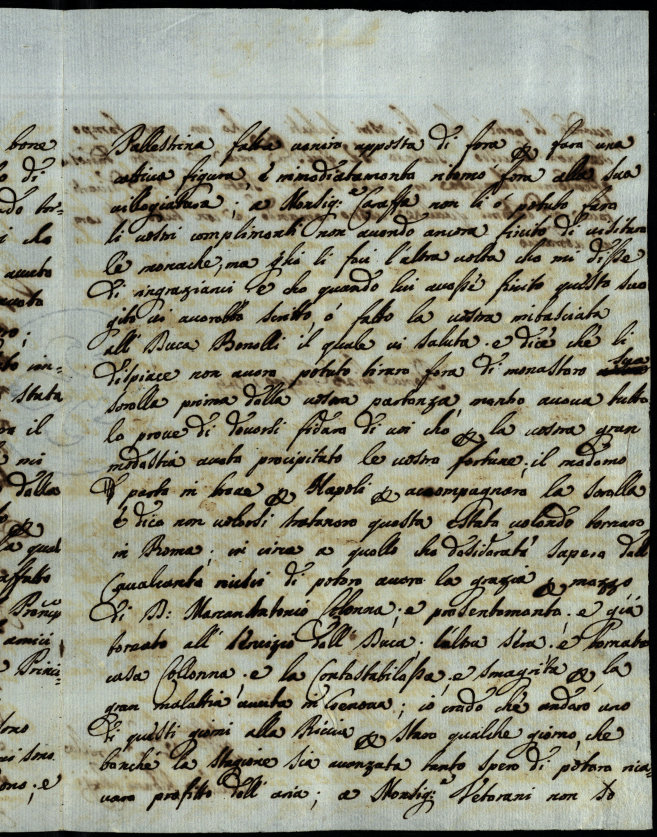 bone
Pallestina fatta venire apposta di fora & fara una
o di
cativa figura, è imediatamente ritorno fora alla sua
ndo tor=
villegiatura; a Monsig:r Caraffa non li o potuto fare
i che
li vostri complimenti non avendo ancora finito di visitare
le monache, ma ghi li feci l'altra volta che mi disse
avuto
di ringraziarvi e che quando lui avesse finito questo suo
giro vi averebbe scritto, o fatto la vostra imbasciata
no;
all' Duca Bonelli il quale vi saluta e dice che li
to in=
dispiace non avere potuto tirare fora di monastero sua
stata
sorella prima della vostra partenza, mentre aveva tutte
ra il
le prove di doversi fidare di voi che & la vostra gran
mi
modestia avete precipitato le vostre fortune; il medemo
dalla
parte in breve & Napoli & accompagnare la sorella
&
e dice non volersi tratenere questa estate volendo tornare
la qual
in Roma; in circa a quello che desiderate sapere dall
affatto
Cavalcante di potere avere la grazia & mezzo
Prencip
di D: Marcantonio Colonna, e presentemente e già
amici
tornato all' servizio dell Duca; l'altra sera è tornata
Prin=
casa Collonna e la Contestabilessa e smagrita & la
gran malattia avuta in Genova; io credo che andere uno
di questi giorni alla Riccia & stare qualche giorno, che
ni sono
benche la stagione sia avanzata tanto spero di potere rica=
ono; e
vare profitto dell' aria; a Monsig:r Veterani non so